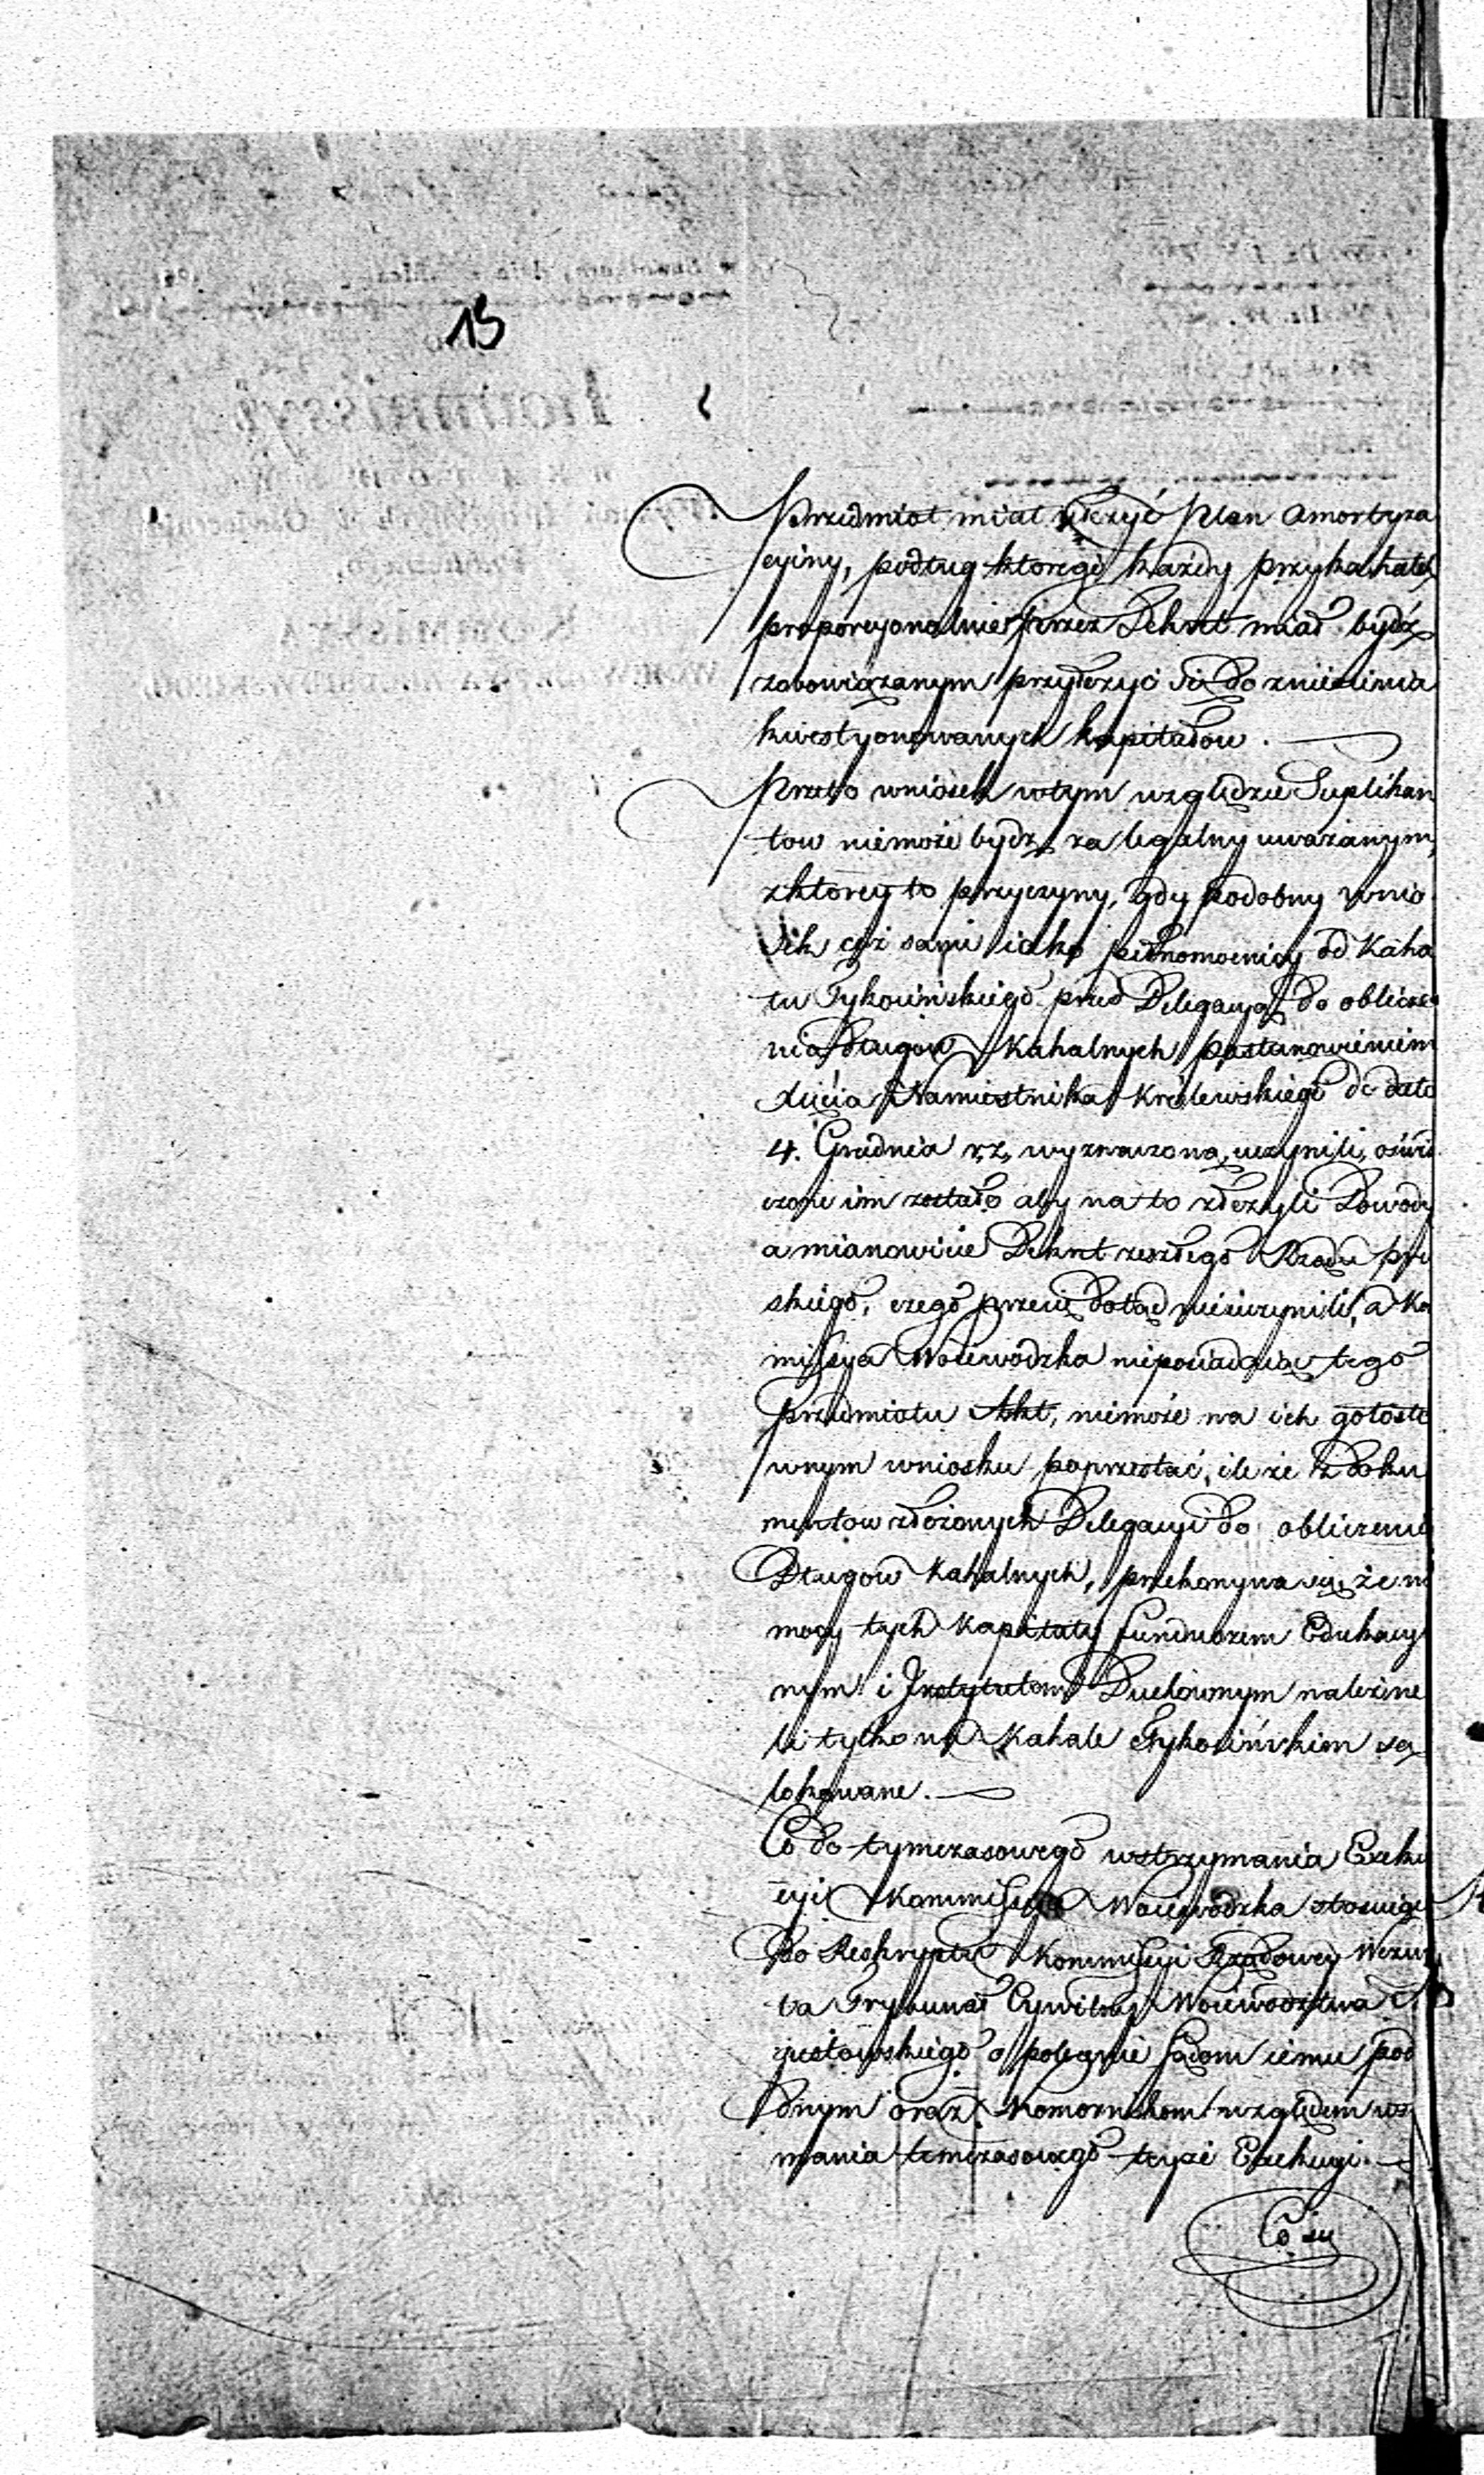 13
Przedmiot miał ułożyć Plan Amortyza
cyiny, podług którego każdy przykahałek
proporcyonalnie przez Dekret miał bydź
zobowiązanym przyłożyć się do zniesienia
kwestyonowanych kapitałow.
Przeto wniosek wtym względzie Suplikan
tow niemoże bydź za legalny uważanym,
zktórey to przyczyny, gdy podobny wnio
sek ciż sami iako pełnomocnicy od Kaha
łu Tykocińskiego przed Delegacyą do oblicze
nia długow Kahalnych postanowieniem
Xięcia Namiestnika Królewskiego de dato
4. Grudnia r. z. wyznaczoną uczynili, oświad
czone im zostało aby na to złożyli Dowody
a mianowicie Dekret zeszłego Rządu pru
skiego, czego przecię dotąd nieuczynili, a Ko
missya Woiewodzka nieposiadaiąc tego
przedmiotu Akt, niemoże na ich gołosło
wnym wniosku poprzestać, ile że z doku
mentow złożonych Delegacyi do obliczenia
Długow Kahalnych, przekonywa się, że
mocy tych Kapitały funduszem Edukacy
nym i Instytutom Duchownym należne
tylko na Kahale Tykocińskim są
lokowane.
Co do tymczasowego wstrzymania Exeku
cyi Kommissya Woiewodzka stosuiąc
do Reskryptu Kommissyi Rządowey Wezwa
ła Trybunał Cywilny Woiewodztwa
gustowskiego o polecenie Sądom iemu pod
dnym oraz Komornikom względem wsz
mania temczasowego teyże Exekucyi.
Co się